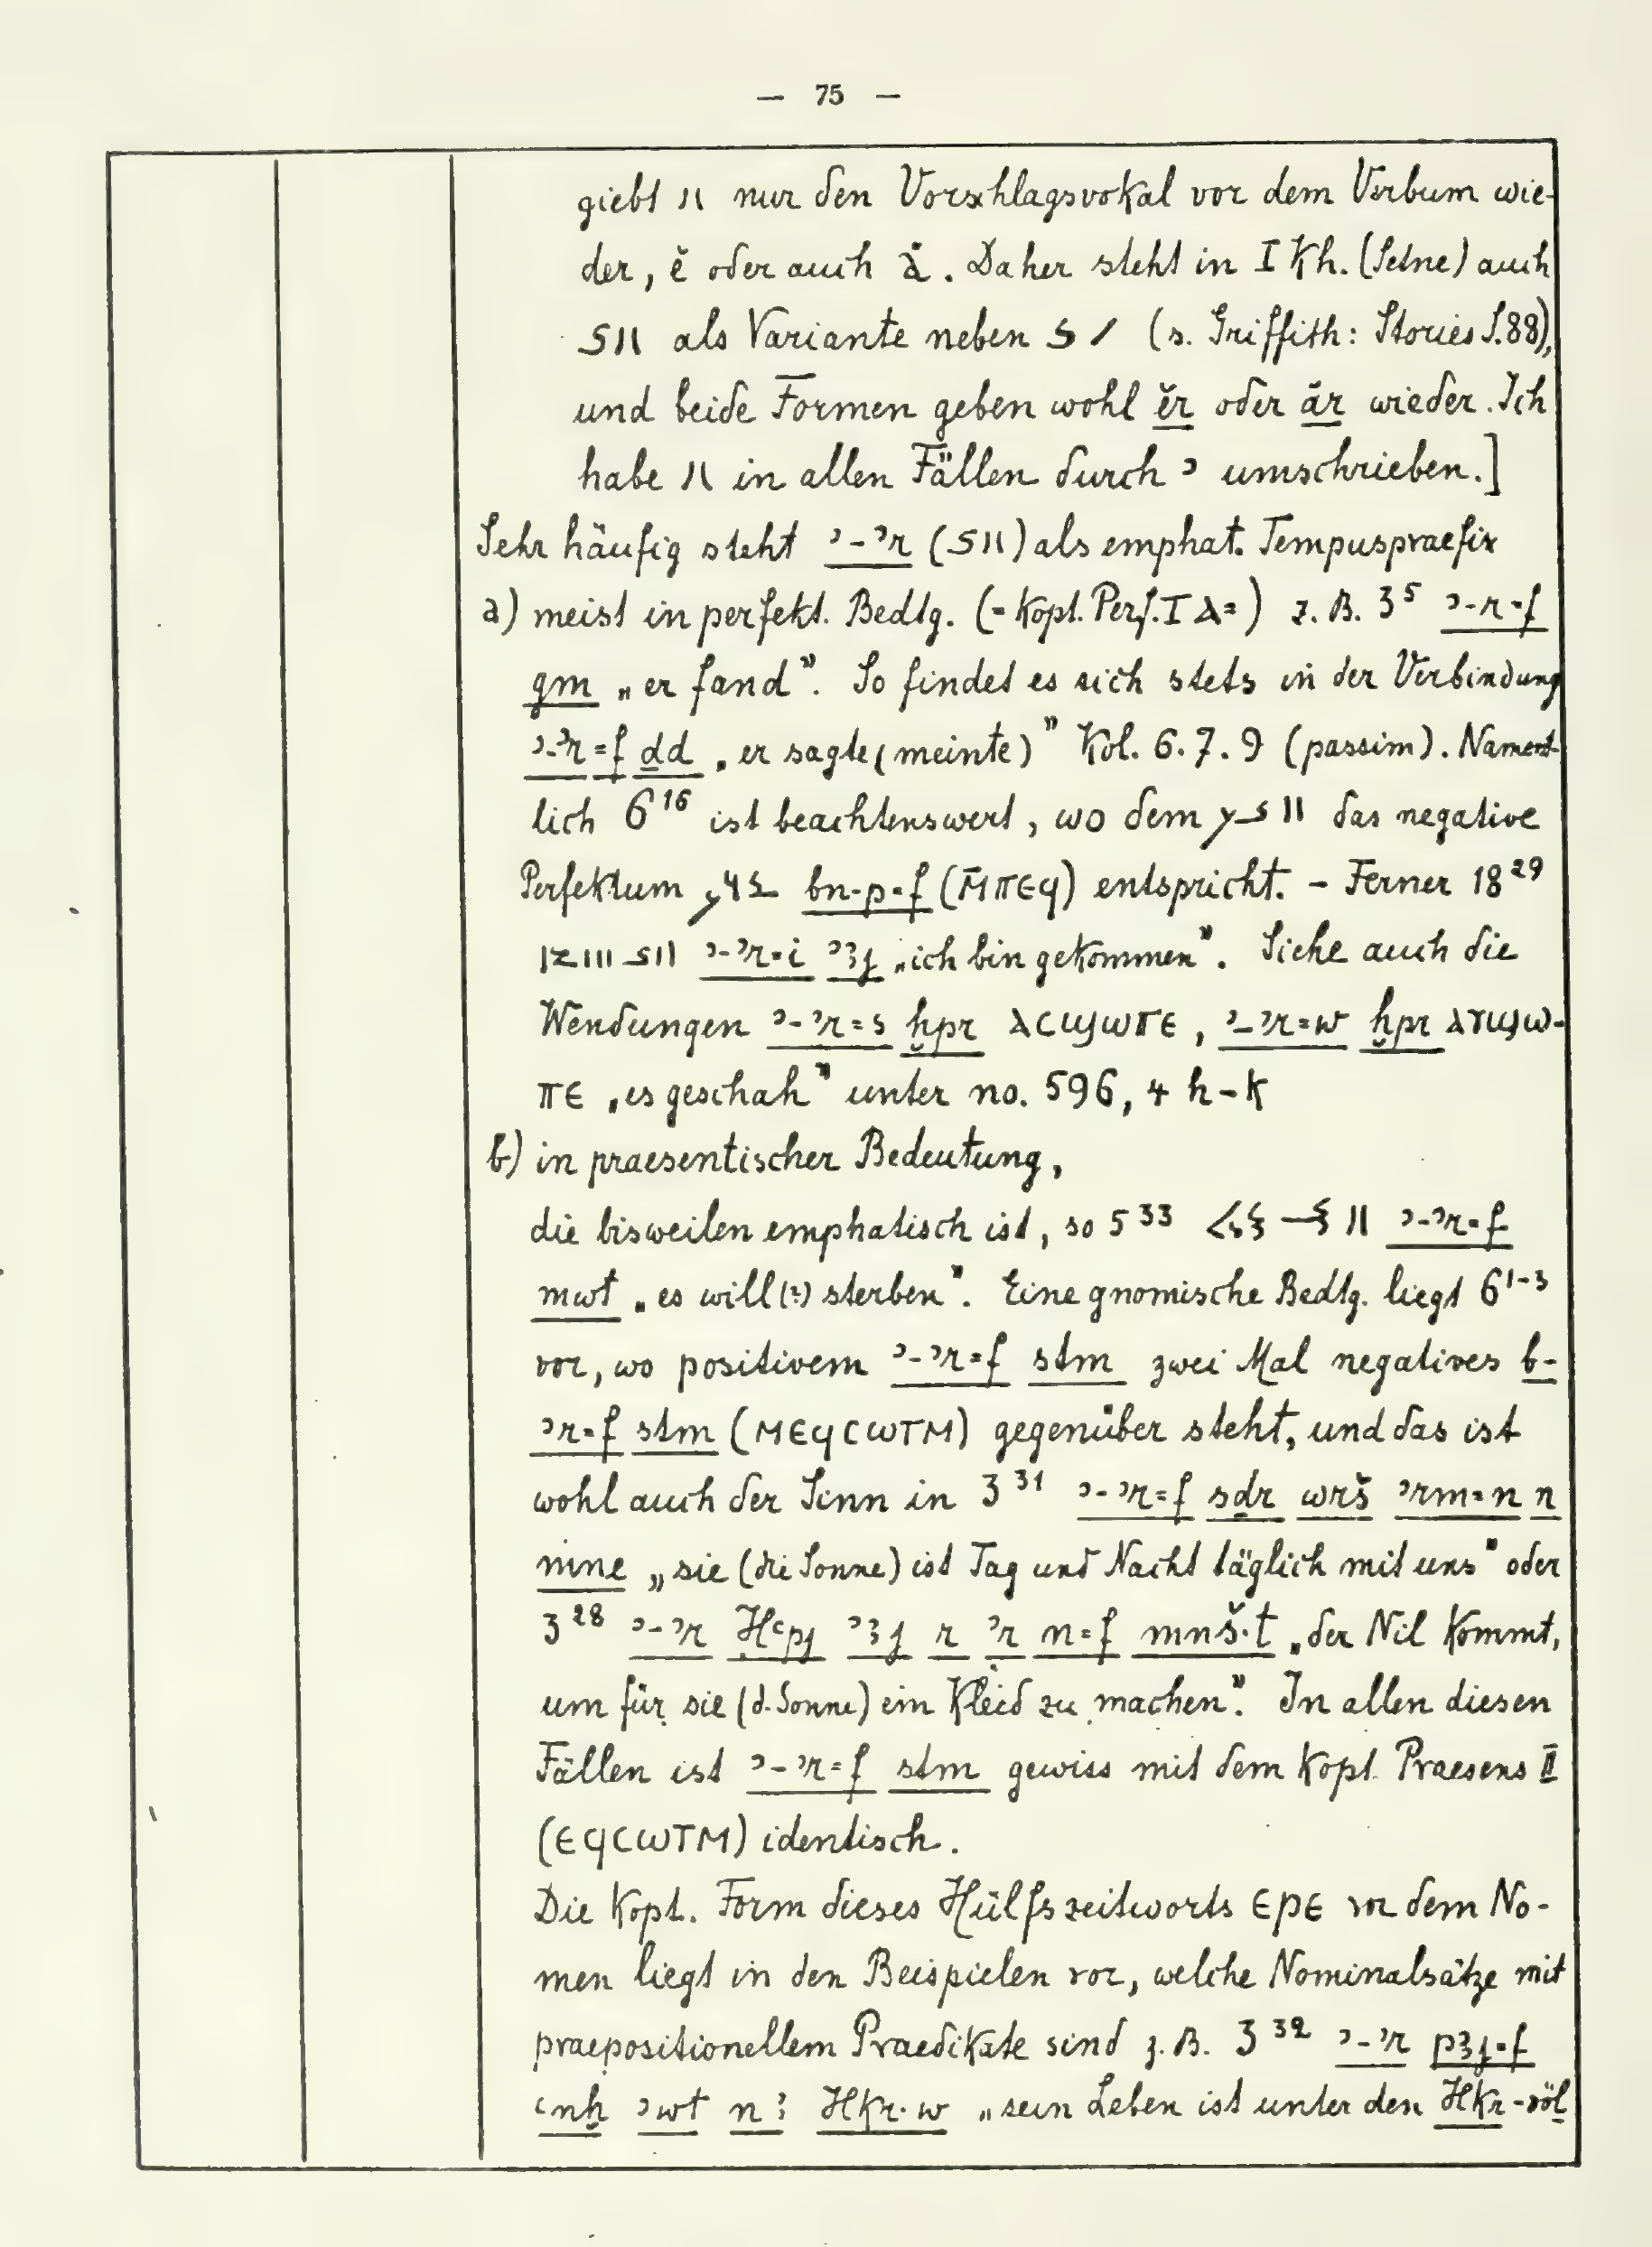 — 75 —
giebt II nur den Vorschlagsvokal vor dem Verbum wie-
der, ĕ oder auch ⲁ̆. Daher steht in I Kh. (Setne) auch
als Variante neben (s. Griffith: Stories S. 88),
und beide Formen geben wohl ĕr oder ăr wieder. Ich
habe II in allen Fällen durch ꜣ umschrieben.]
Sehr häufig steht ꜣ-ꜣr als emphat. Tempuspraefix
a) meist in perfekt. Bedtg. (= Kopt. Perf. I ⲁ=) z. B. 3⁵ ꜣ-r=f
gm „er fand”. So findet es sich stets in der Verbindung
ꜣ-ꜣr=f ḏd „er sagte (meinte)” Kol. 6. 7. 9 (passim). Nament-
lich 6¹⁶ ist beachtenswert, wo dem das negative
Perfektum bn-p=f (ⲙ̄ⲡⲉϥ) entspricht. – Ferner 18²⁹
ꜣ-ꜣr=i „ich bin gekommen”. Siehe auch die
Wendungen ꜣ-ꜣr=s ḫpr ⲁⲥϣⲱⲡⲉ, ꜣ-ꜣr=w ḫpr ⲁⲩϣⲱ-
ⲡⲉ „es geschah” unter no. 596, 4 h-k
b) in praesentischer Bedeutung,
die bisweilen emphatisch ist, so 5³³ ꜣ-ꜣr=f
mwt „es will (?) sterben”. Eine gnomische Bedtg. liegt 6¹⁻³
vor, wo positivem ꜣ-ꜣr=f stm zwei Mal negatives b-
ꜣr=f stm (ⲙⲉϥⲥⲱⲧⲙ) gegenüber steht, und das ist
wohl auch der Sinn in 3³¹ ꜣ-ꜣr=f sḏr wrš ꜣrm=n n
mne „sie (die Sonne) ist Tag und Nacht täglich mit uns” oder
3²⁸ ꜣ-ꜣr Ḥꜥpj r ꜣr n=f mnš·t „der Nil kommt,
um für sie (d. Sonne) ein Kleid zu machen”. In allen diesen
Fällen ist ꜣ-ꜣr=f stm gewiss mit dem Kopt. Praesens II
(ⲉϥⲥⲱⲧⲙ) identisch.
Die Kopt. Form dieses Hülfszeitworts ⲉⲣⲉ vor dem No-
men liegt in den Beispielen vor, welche Nominalsätze mit
praepositionellem Praedikate sind z. B. 3³² ꜣ-ꜣr
ꜥnḫ ꜣwt Hkr·w „sein Leben ist unter den Hkr-völ